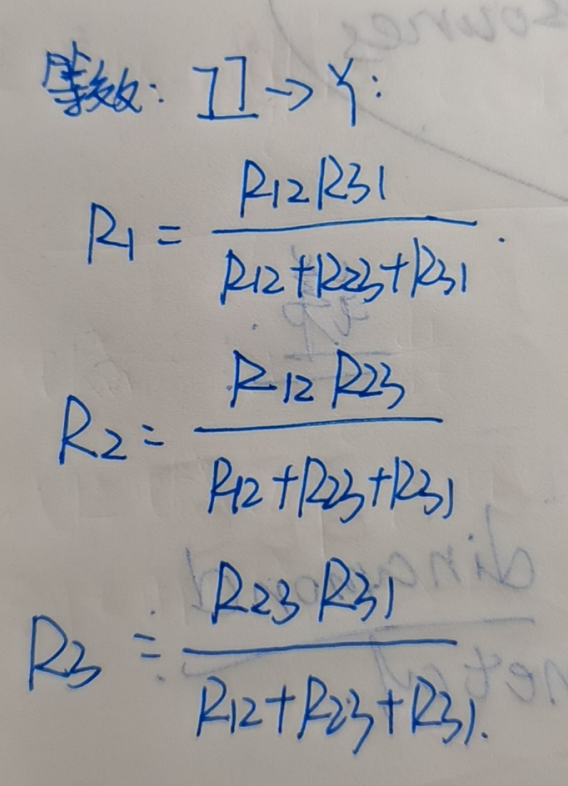 等效: 工→Y:
R1 = R12R31 / R12+R23+R31.
R2 = R12 R23 / R12+R23+R31
R3 = R23 R31 / R12+R23+R31.